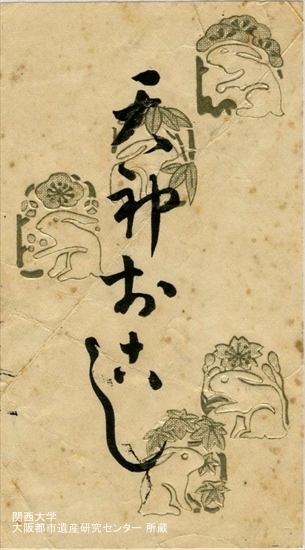 天神おこし
関西大学
大阪都市遺産研究センター 所蔵